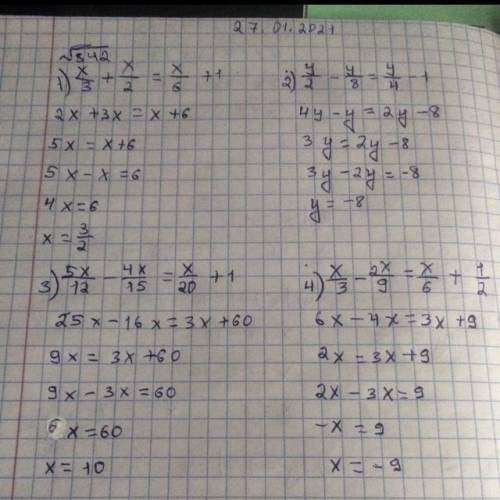 27.01.2021
√342
1) x/3 + x/2 = x/6 + 1
2x + 3x = x + 6
5x = x + 6
5x - x = 6
4x = 6
x = 3/2
2) y/2 - y/8 = y/4 - 1
4y - y = 2y - 8
3y = 2y - 8
3y - 2y = -8
y = -8
3) 5x/12 - 4x/15 = x/20 + 1
25x - 16x = 3x + 60
9x = 3x + 60
9x - 3x = 60
6x = 60
x = 10
4) x/3 - 2x/9 = x/6 + 1/2
6x - 4x = 3x + 9
2x = 3x + 9
2x - 3x = 9
-x = 9
x = -9